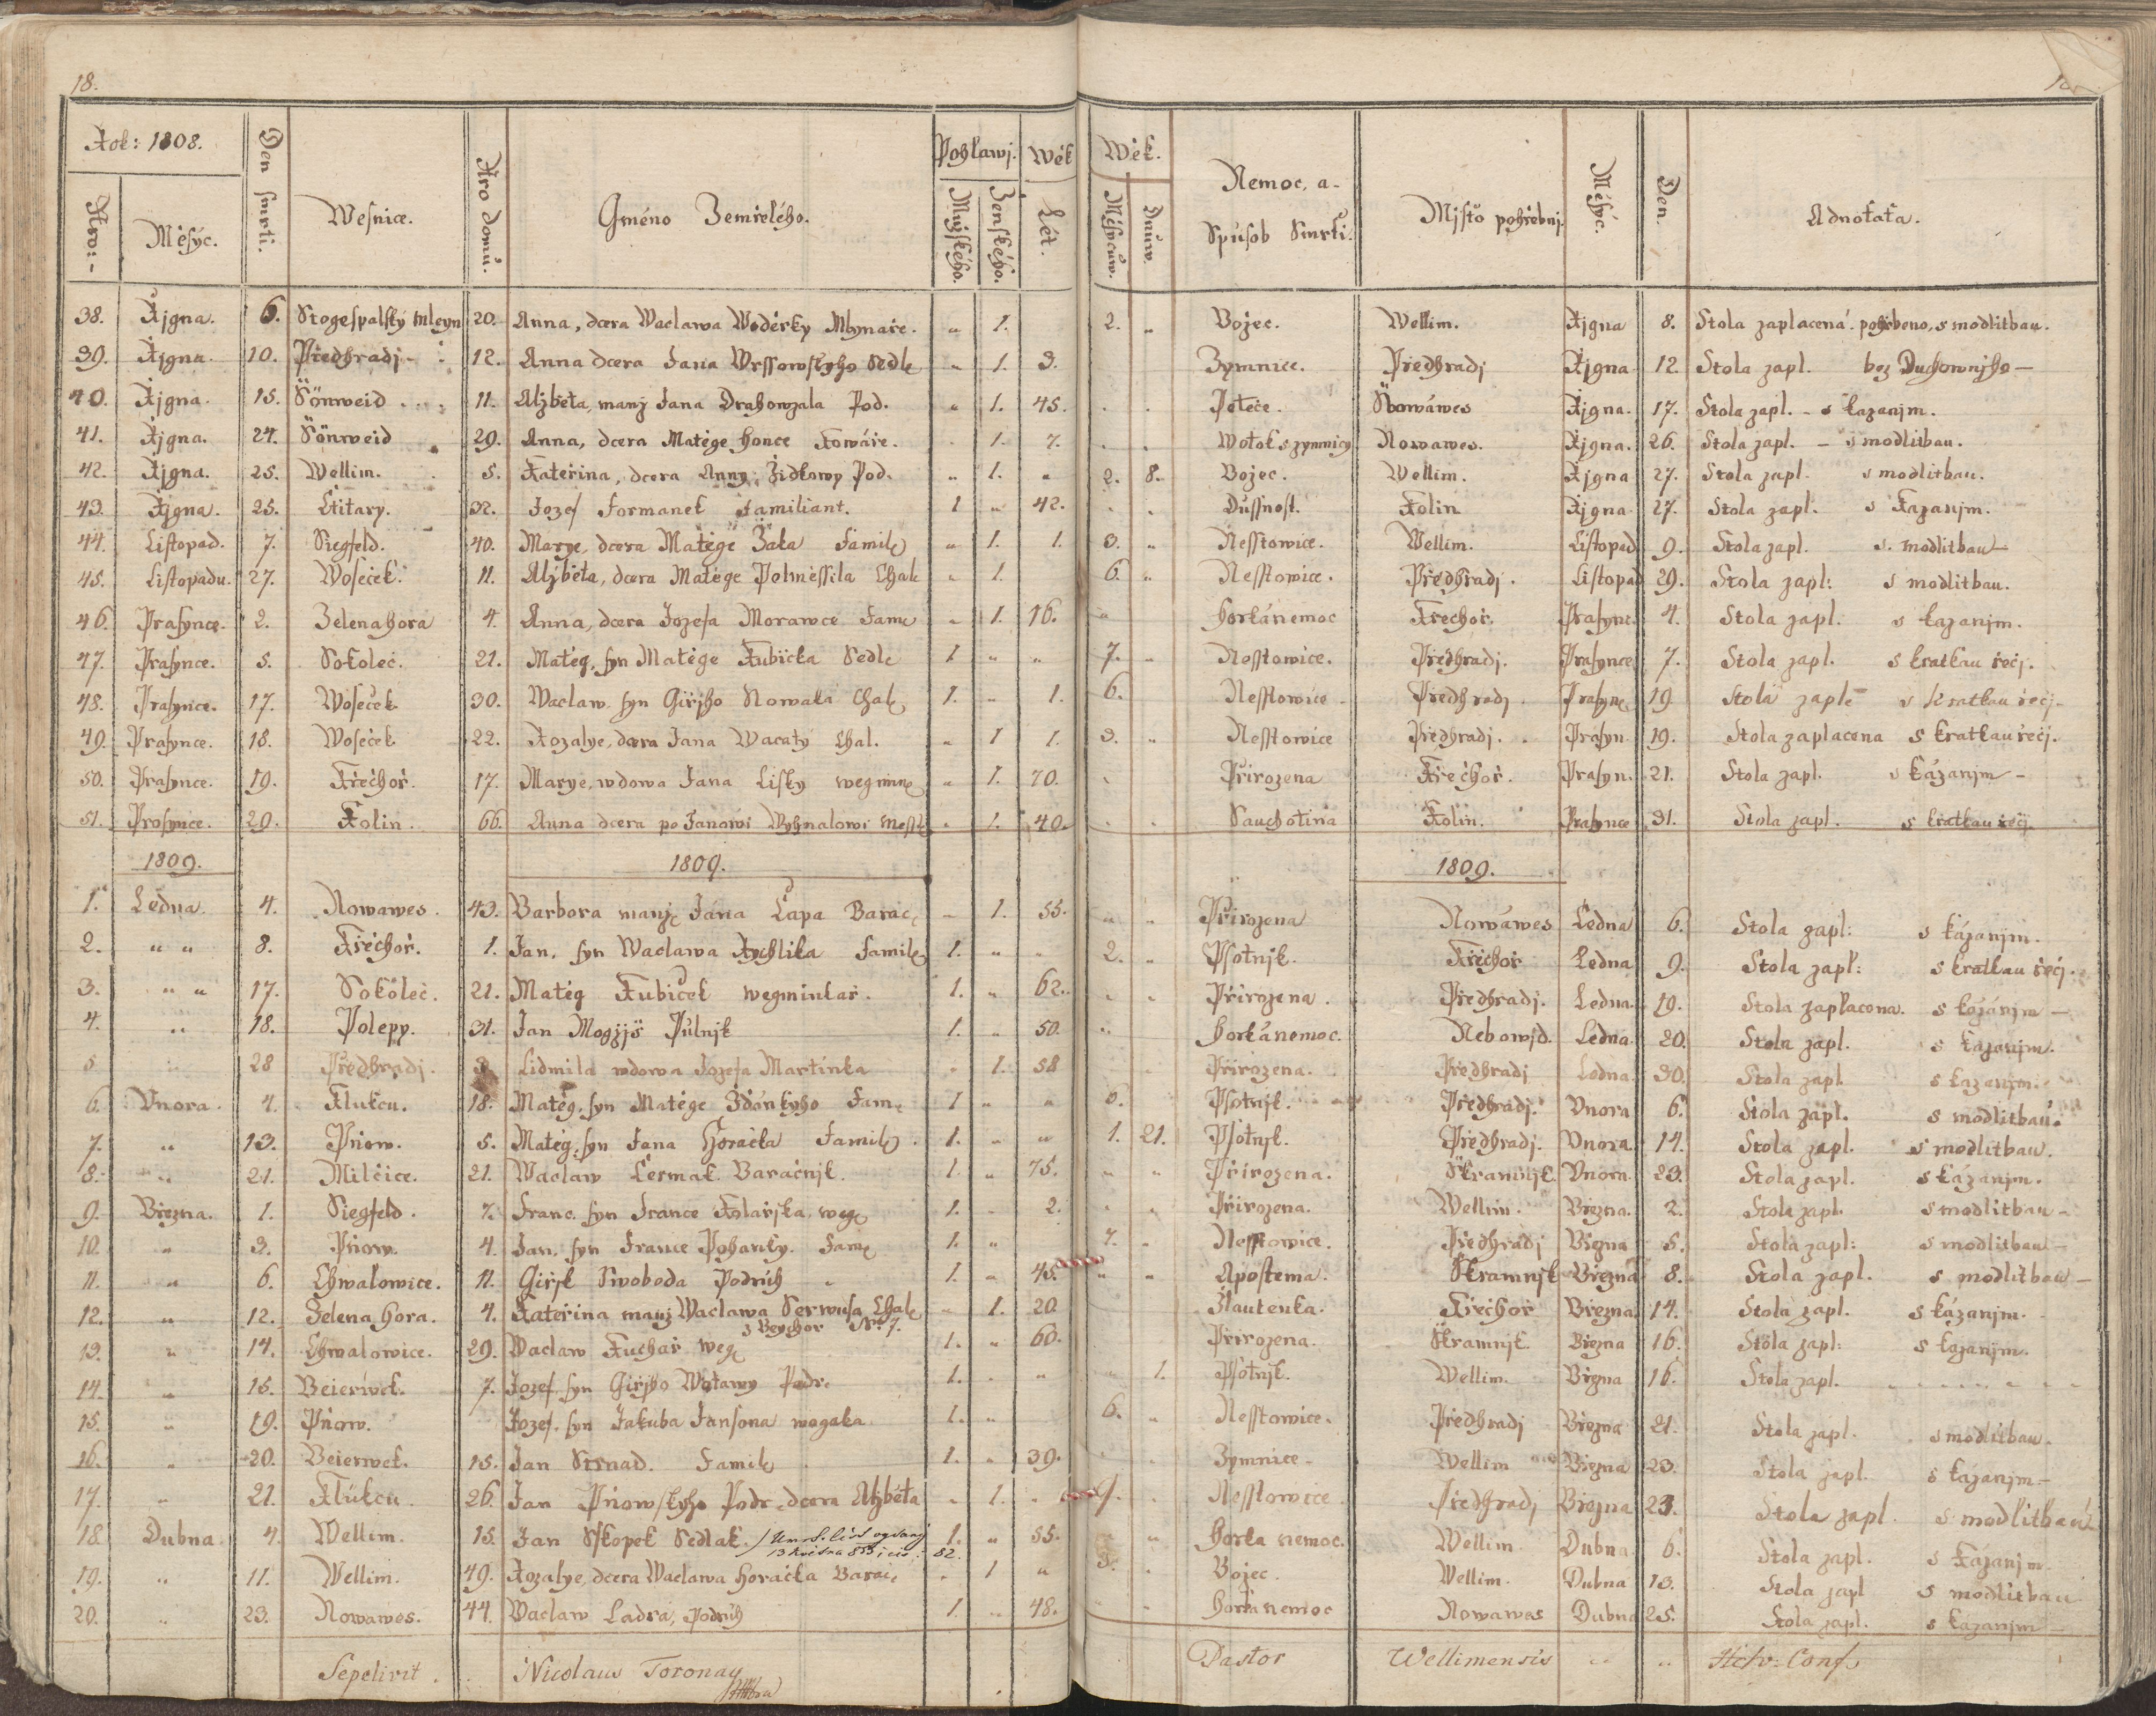 18.
Rok: 1808. Den smrti. Wesnice. Nro domu. Gméno Zemřelého. Pohlawj. Wěk Wěk. Nemoc, a Spúsob Smrti. Mjsto pohřebnj. Měsýc. Den. Adnotata.
Nro: Měsýc. Mužského. Ženského. Lét. Měsycůw. Dnůw.
38. Řjgna. 6. Stogespalský Mleyn 20. Anna, dcera Waclawa Woděrky Mlynaře. „ 1. 2. „ Božec. Wellim. Řjgna 8. Stola zaplacená. pohřbeno, s modlitbau.
39. Řjgna. 10. Předhradj 12. Anna dcera Jana Wrssowského Sedl „ 1. 3. Zymnice. Předhradj Řjgna 12. Stola zapl. bez Duchownjho
40. Řjgna. 15. Sönweid 11. Alžběta, manž Jana Drahowzala Pod. „ 1. 45. Poteče. Nowáwes Řjgna. 17. Stola zapl. s kazanjm.
41. Řjgna. 24. Sönweid 29. Anna, dcera Matěge Honce Kowáře. 1. 7. Wotok s zymnicy Nowawes. Řjgna. 26. Stola zapl. s modlitbau.
42. Řjgna. 25. Wellim. 5. Kateřina, dcera Anny Židkowy Pod. „ 1. „ 2. 8. Božec. Wellim. Řjgna 27. Stola zapl. s modlitbau.
43. Řjgna. 25. Štitary. 32. Jozef Formanek Familiant. 1 „ 42. Dussnost. Kolin Řjgna 27. Stola zapl. s Kazanjm.
44. Listopad. 7. Siegfeld. 40. Marye, dcera Matěge Žaka Famil „ 1. 1. 3. „ Nesstowice. Wellim. Listopad 9. Stola zapl. s modlitbau
45. Listopadu. 27. Woseček. 11. Alžběta, dcera Matěge Polměssila Chal „ 1. 6. „ Nesstowice. Předhradj. Listopad 29. Stola zapl: s modlitbau.
46. Prasynce. 2. Zelenahora 4. Anna, dcera Jozefa Morawce Fam „ 1. 16. „ Horkánemoc Křechoř. Prasync. 4. Stola zapl. s kazanjm.
47. Prasynce. 5. Sokoleč. 21. Matěg, syn Matěge Kubička Sedl 1. „ „ 7. „ Nesstowice. Předhradj. Prasynce 7. Stola zapl. s kratkau řečj.
48. Prasynce. 17. Woseček 30. Waclaw syn Giřjho Nowaka Chal 1. „ 1. 6. Nesstowice Předhradj Prasync 19. Stola zapl s kratkau řečj
49. Prasynce. 18. Woseček 22. Rozalye, dcera Jana Wacaty Chal. „ 1 1. 3. „ Nesstowice Předhradj. Prasyn. 19. Stola zaplacena s kratkau řečj.
50. Prasynce. 19. Křechoř. 17. Marye, wdowa Jana Lisky wegmin „ 1. 70. Přirozena Křechoř. Prasyn. 21. Stola zapl. s kázanjm
51. Prosynce. 29. Kolin. 66. Anna dcera po Janowi Weyhnalowi Messt „ 1. 40. Sauchotina Kolin. Prasynce 31. Stola zapl. s kratkau řečj.
1809. 1809. 1809.
1. Ledna. 4. Nowawes. 43. Barbora manž Jána Čapa Barač „ 1. 55. „ „ Přirozena Nowáwes Ledna 6. Stola zapl: s kázanjm.
2. „ „ 8. Křechoř. 1. Jan, syn Waclawa Rychlika Famil 1. „ „ 2. „ Psotnjk. Křechoř Ledna 9. Stola zapl: s kratkau řečj.
3. „ „ 17. Sokoleč. 21. Matěg Kubiček wegminkař. 1. „ 62. „ „ Přirozena. Předhradj. Ledna. 19. Stola zaplacena. s kázánjm
4. „ 18. Polepy. 31. Jan Mogžjš Pulnjk 1. „ 50. „ Horkánemoc. Nebowjd. Ledna. 20. Stola zapl. s kazanjm.
5 28 Předhradj. 3. Lidmila wdowa Jozefa Martinka „ 1. 58 Přirozena. Předhradj Ledna. 30. Stola zapl. s kazanjm.
6. Vnora. 4. Klukcu. 18. Matěg, syn Matěge Zdánkyho Fam. 1 „ „ 6. Psotnjk. Předhradj. Vnora 6. Stola zapl. s modlitbau.
7. „ 13. Pňow. 5. Matěg, syn Jana Horačka Famil. 1. „ „ 1. 21. Psotnjk. Předhradj. Vnora 14. Stola zapl. s modlitbau.
8. „ 21. Milčice. 21. Waclaw Čermak Baračnjk. 1. „ 75. „ „ Přirozena. Skramnjk. Vnora. 23. Stola zapl. s kázanjm.
9. Března. 1. Siegfeld. 7. Franc. syn France Kolařjka weg 1. „ 2. „ „ Přirozena. Wellim. Března. 2. Stola zapl. s modlitbau
10. „ 3. Pňow. 4. Jan, syn France Pohanky. Fam 1. „ 7. „ Nesstowice. Předhradj Března 5. Stola zapl: s modlitbau
11. „ 6. Chwalowice. 11. Giřjk Swoboda Podrúh 1. „ 45. „ „ Apostema. Skramnjk Března 8. Stola zapl. s modlitbau
12. „ 12. Zelena Hora. 4. Kateřina manž Waclawa Serwusa Chal „ 1. 20 Žlautenka. Křechoř Března 14. Stola zapl. s kázanjm.
z Beychor Nr. 7.
13. „ 14. Chwalowice. 29. Waclaw Kuchař weg 1. „ 60. Přirozena. Skramnjk. Března 16. Stola zapl: s kazanjm.
14. „ 15. Beierwek. 7. Jozef, syn Giřjho Wotawy Podr. 1. „ „ „ 1. Psotnjk. Wellim. Března 16. Stola zapl.
15. „ 19. Pňow. Jozef, syn Jakuba Jansona wogaka 1. „ 6. „ Nesstowice. Předhradj Března 21. Stola zapl. s modlitbau.
16. „ 20. Beierwek. 15. Jan Strnad. Famil 1. „ 39. Zymnice Wellim Března 23. Stola zapl. s kázanjm
17. „ 21. Klukcu. 26. Jan Pňowskyho Podr. dcera Alžběta „ 1. „ 9. Nesstowice Předhradj Března 23. Stola zapl. s modlitbau
18. Dubna. 4. Wellim. 15. Jan Sskopek Sedlak. / Umrt. list vydaný 1. „ 55. „ „ Horka nemoc. Wellim Dubna 6. Stola zapl. s Kázanjm
13 května 855 čis: 82.
19. „ 11. Wellim. 49. Rozalye, dcera Waclawa Horačka Barač. „ 1 „ 3. „ Bojec. Wellim. Dubna 13. Stola zapl s modlitbau
20. „ 23. Nowawes. 44. Waclaw Ladra, Podrúh 1. „ 48. „ „ Horka nemoc Nowawes Dubna 25. Stola zapl. s kazanjm
Sepelivit. Nicolaus Toronay Pastor Wellimensis Helv: Conf.